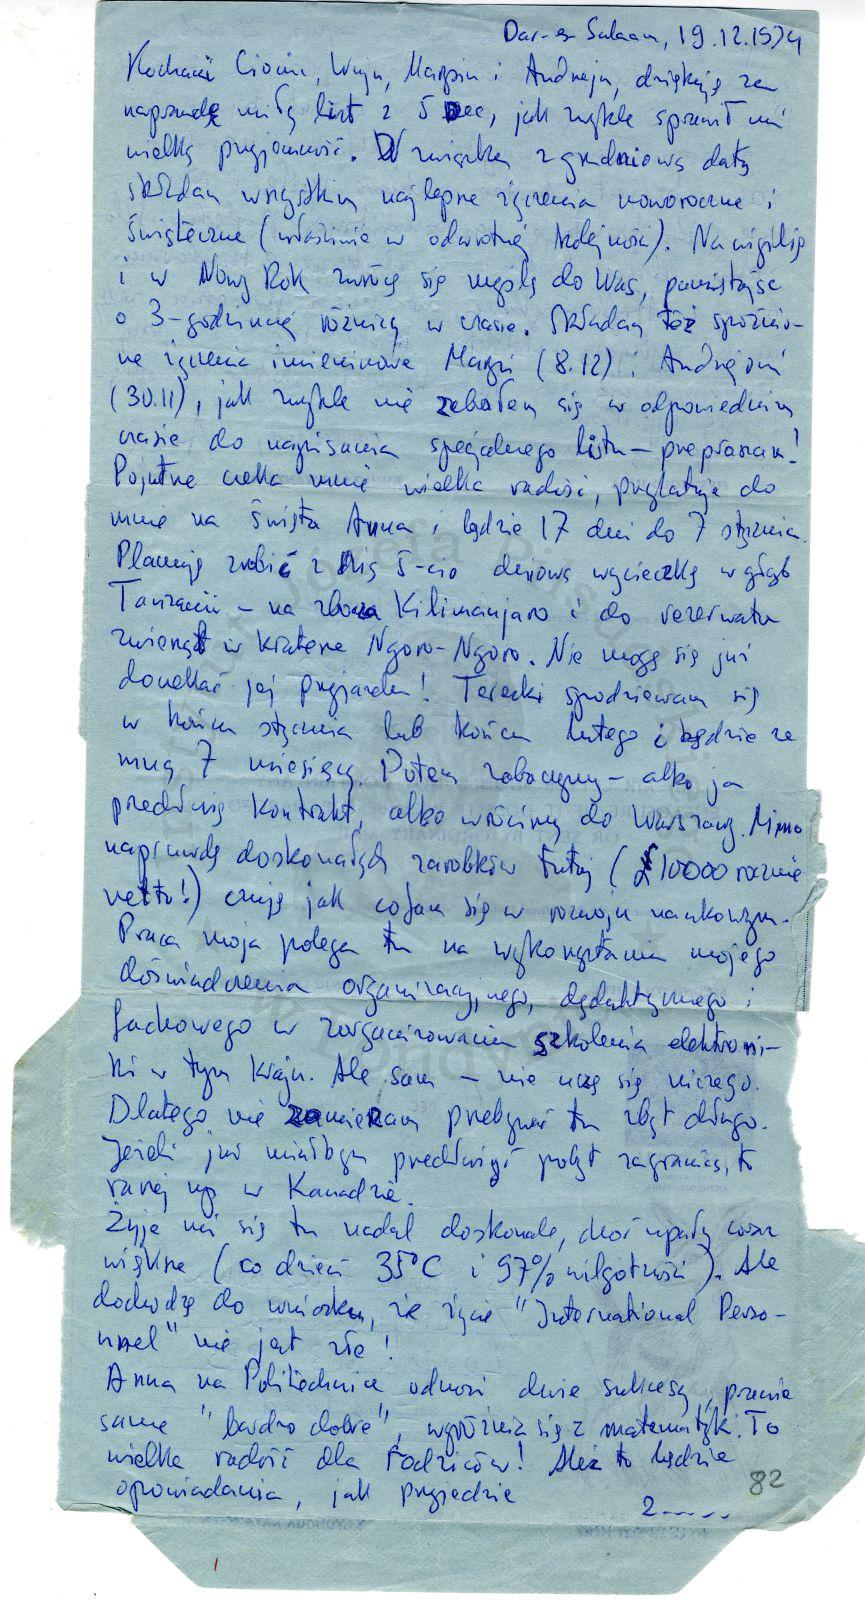 Dar-es Salaam, 19.12.1974
Kochani Ciociu, Wuju, Marysiu i Andrzeju, dziękuję za
naprawdę miły list z 5 Dec, jak zwykle sprawił mi
wielką przyjemność. W związku z grudniową datą
składam wszystkim najlepsze życzenia noworoczne i
świąteczne (właśnie w odwrotnej kolejności). Na wigilię
i w Nowy Rok zwrócę się myślą do Was, pamiętając
o 3-godzinnej różnicy w czasie. Składam też spóźnio-
ne życzenia imieninowe Marysi (8.12) i Andrzejowi
(30.11), jak zwykle nie zebrałem się w odpowiednim
czasie do napisania specjalnego listu – przepraszam!
Pojutrze czeka mnie wielka radość, przylatuje do
mnie na święta Anna i będzie 17 dni do 7 stycznia.
Planuję zrobić z Nią 5-cio dniową wycieczkę w głąb
Tanzanii – na zbocza Kilimanjaro i do rezerwatu
zwierząt w kraterze Ngoro-Ngoro. Nie mogę się już
doczekać jej przyjazdu! Tereski spodziewam się
w końcu stycznia lub końcu lutego i będzie ze
mną 7 miesięcy. Potem zobaczymy – albo ja
przedłużę kontrakt, albo wrócimy do Warszawy. Mimo
naprawdę doskonałych zarobków tutaj (£10000 rocznie
netto!) czuję jak cofam się w rozwoju naukowym.
Praca moja polega tu na wykorzystaniu mojego
doświadczenia organizacyjnego, dydaktycznego i
fachowego w zorganizowaniu szkolenia elektroni-
ki w tym kraju. Ale sam – nie uczę się niczego.
Dlatego nie zamierzam przebywać tu zbyt długo.
Jeżeli już miałbym przedłużyć pobyt zagranicą, to
raczej np w Kanadzie.
Żyje mi się tu nadal doskonale, choć upały coraz
większe (co dzień 35°C i 97% wilgotności). Ale
dochodzę do wniosku, że życie "International Perso-
nnel" nie jest złe!
Anna na Politechnice odnosi duże sukcesy, prawie
same "bardzo dobre", wyróżnia się z matematyki. To
wielka radość dla rodziców! Ależ to będzie
opowiadania, jak przyjedzie
2-----
82